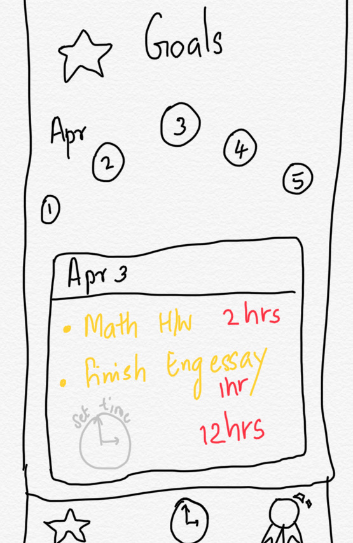 Goals
Apr
1
2
3
4
5
Apr 3
• Math H/W 2 hrs
• Finish Eng essay
1hr
set time
12hrs